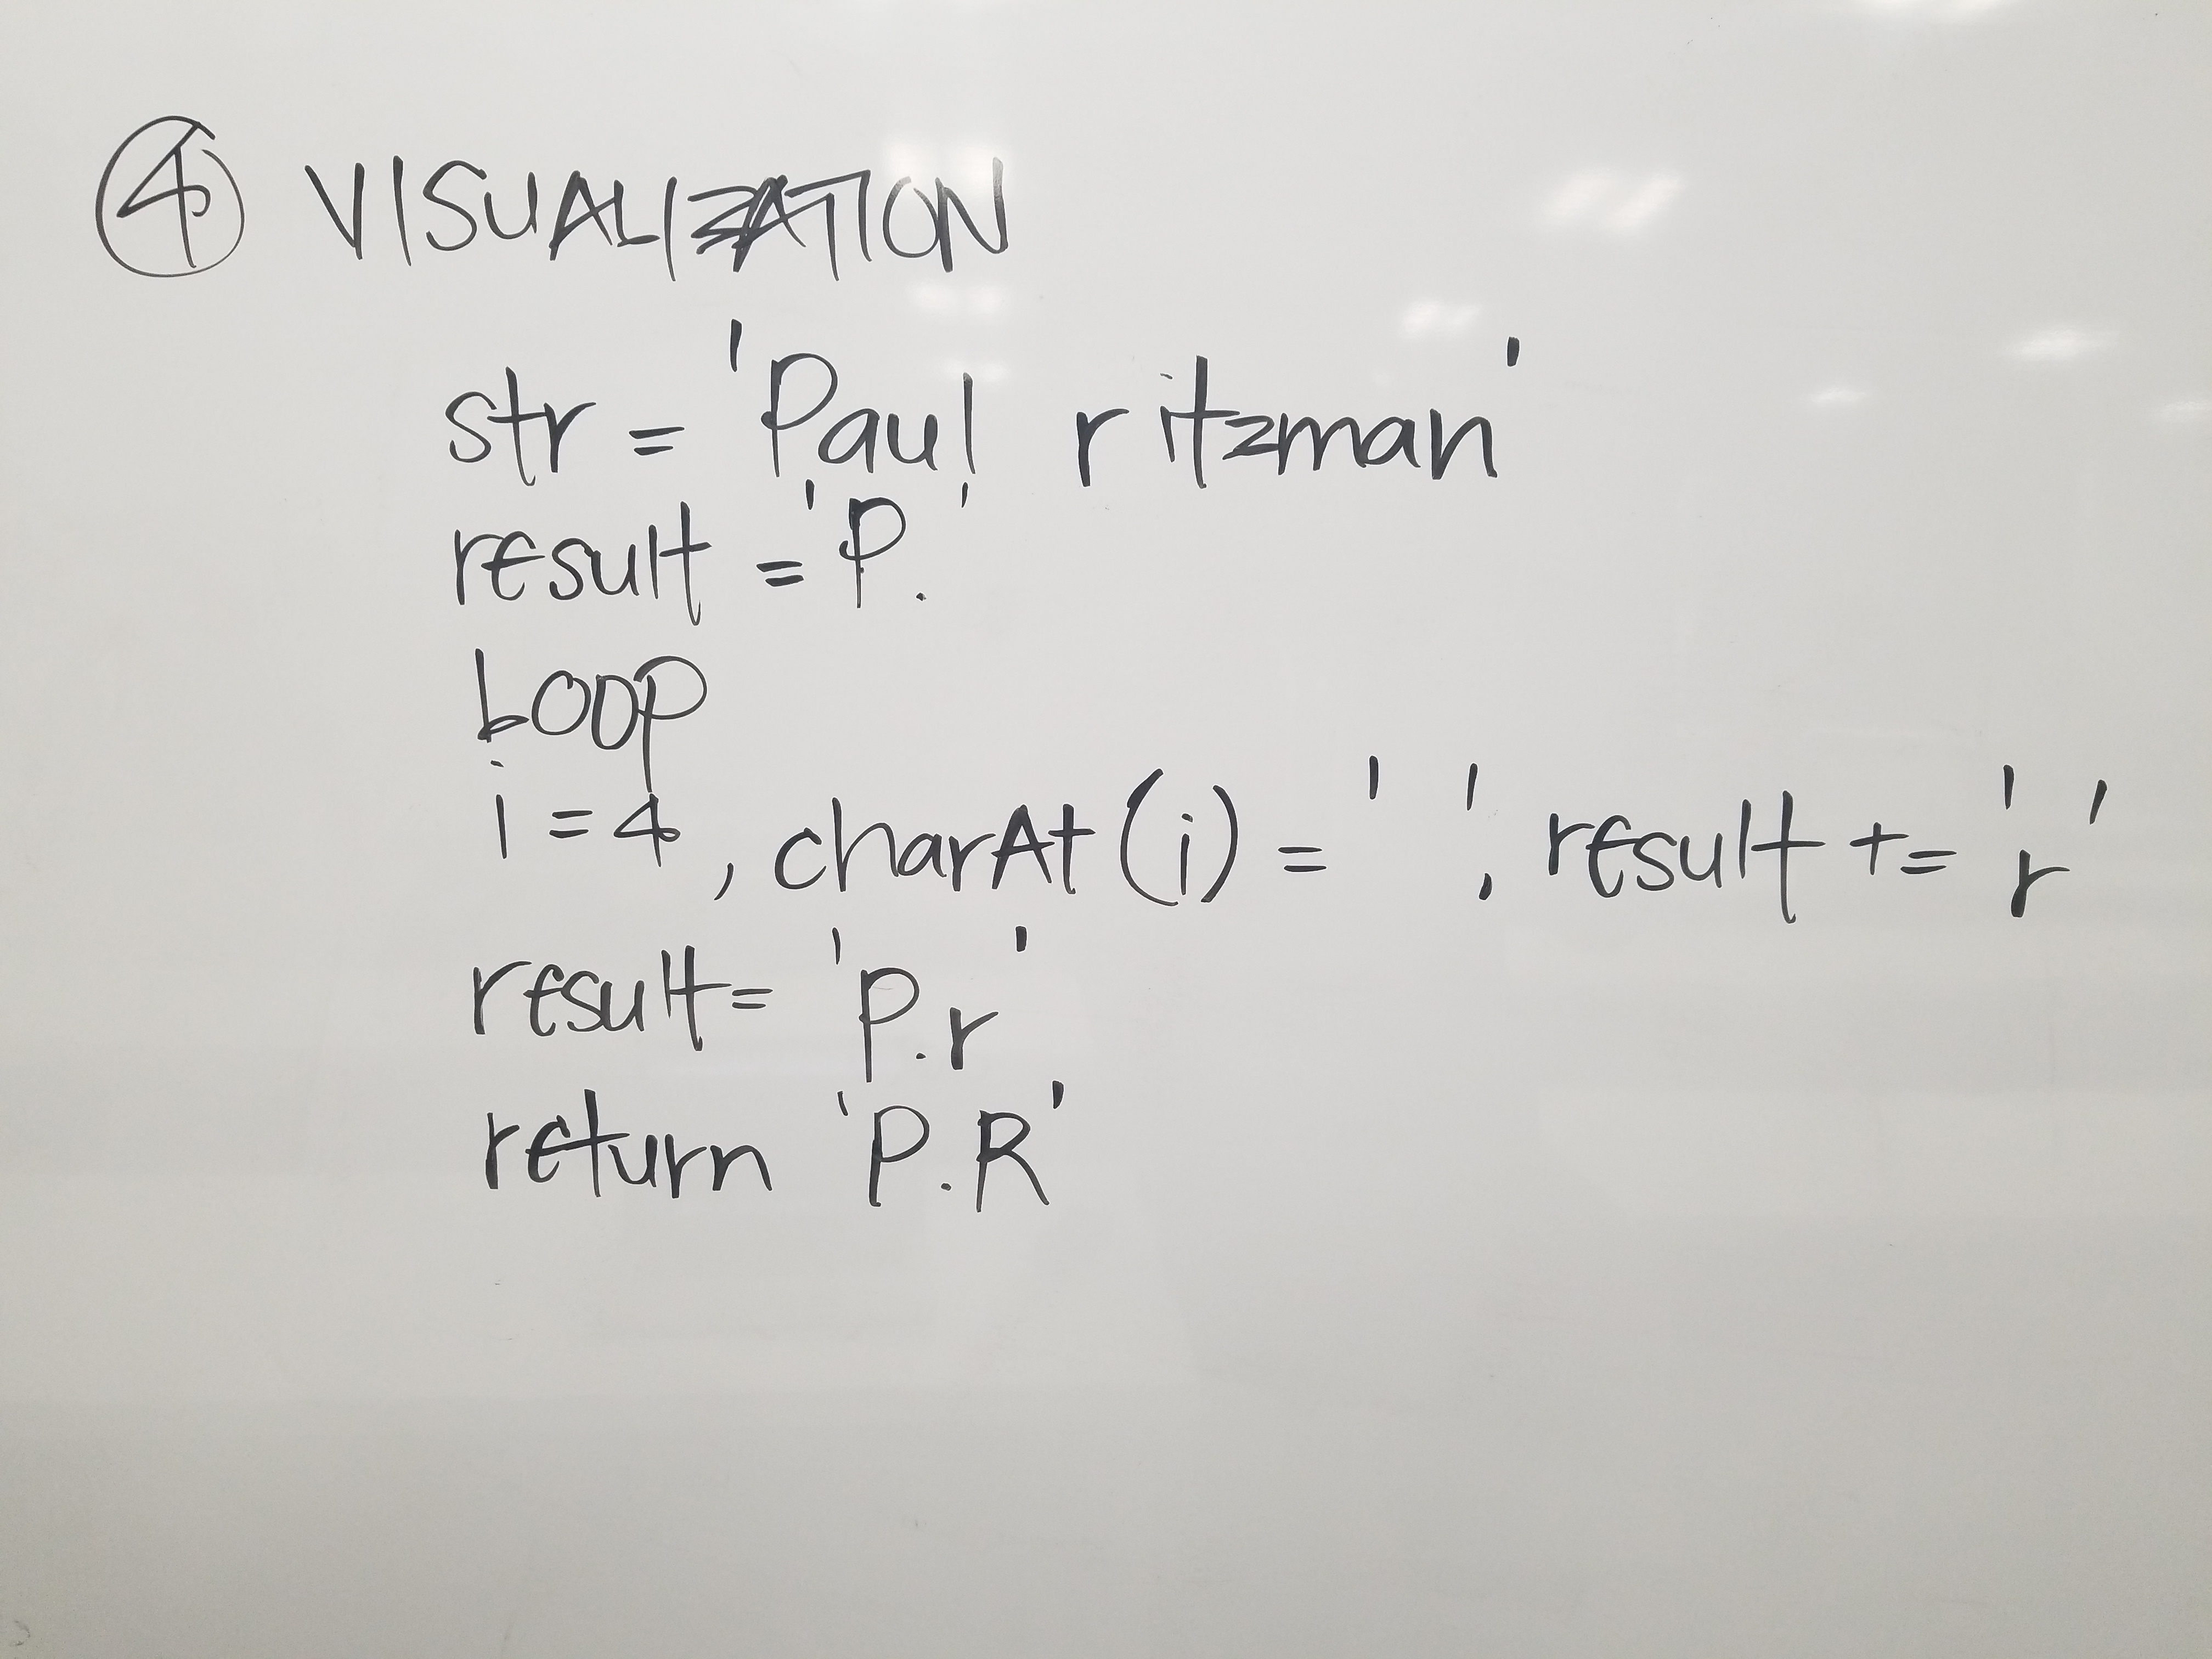 ④ VISUALIZATION
str = 'Paul ritzman'
result = 'P.'
LOOP
i = 4, charAt(i) = ' ', result += 'r'
result = 'P.r'
return 'P.R'